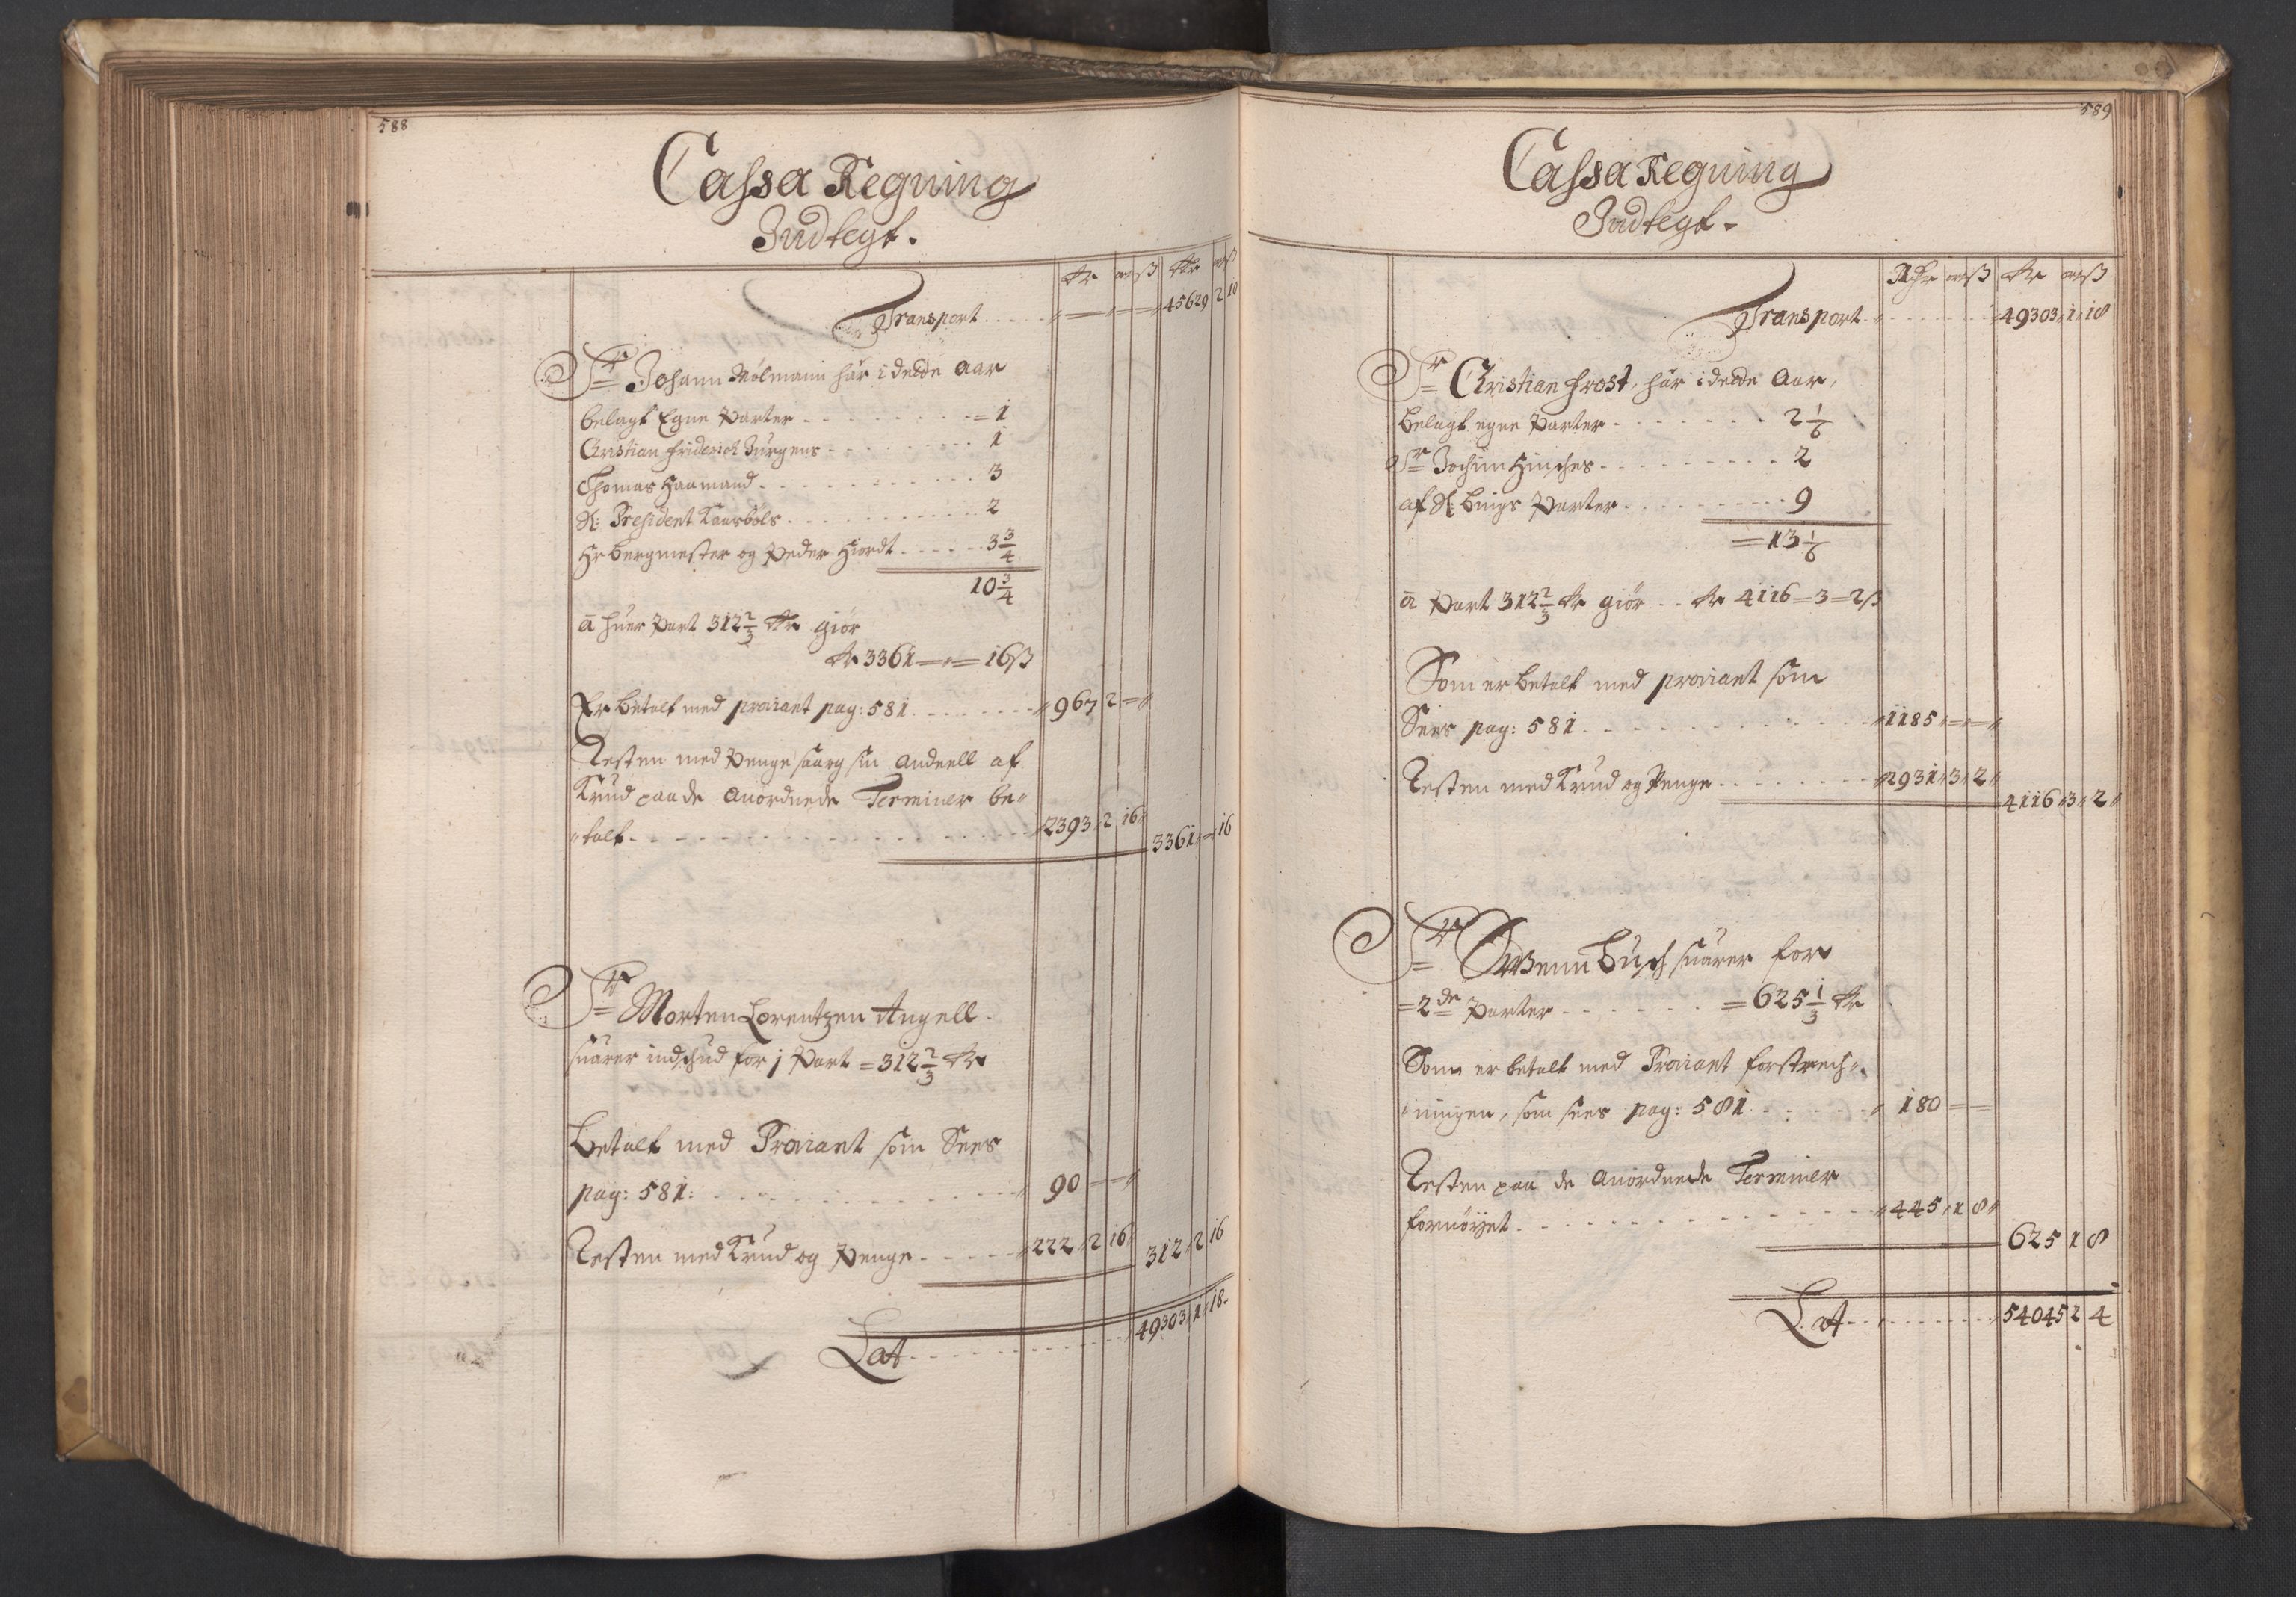 588
Cassa Regning
Indtegt.
Rdr ort ß Rdr ort ß
Transport . . . . . 45629 2 10
Sr Johann Mölmann har i dette Aar
belagt Egne Parter . . . . = 1
Christian Friderich Jürgens . . . . 1
Thomas Hammand . . . . 3
Sl: President Kaasböls . . . . 2
Hr bergmester og Peder Hiordt . . . . 3 3/4
10 3/4
a huer Part 312 2/3 Rdr giör
Rdr 3361 = " = 16 ß
Er betalt med proviant pag: 581 . . . . 967 2 "
Resten med Penge saa og sin Andeell af
Krud paa de Anordnede Terminer be"
"talt . . . . 2393 2 16 3361 " 16
Sr Morten Lorentzen Angell
suarer indschud for 1 Part = 312 2/3 Rdr
Betalt med Proviant som Sees
pag: 581: . . . . 90 " "
Resten med Krud og Penge . . . . 222 2 16 312 2 16
Lat . . . . 49303 1 18
589
Cassa Regning
Indtegt.
Rdr ort ß Rdr ort ß
Transport . . . . 49303 1 18
Sr Christian Frost, har i dette Aar,
belagt egne Parter . . . . 2 1/6
Sr Jochim Hinches . . . . 2
af Sl: Bings Parter . . . . 9
= 13 1/6
a Part 312 2/3 Rdr giör . . Rdr 4116 = 3 = 2 ß
Som er betalt med proviant som
Sees pag: 581 . . . . 1185 " "
Resten med Krud og Penge . . . . 2931 3 2 4116 3 2
Sr Swenn Busch suarer for
= 2de Parter . . . . = 625 1/3 Rdr
Som er betalt med Proviant forstrech"
"ningen, som sees pag: 581 . . . . 180
Resten paa de Anordnede Terminer
fornöyet . . . . 445 1 8 625 1 8
Lat . . . . 54045 2 4